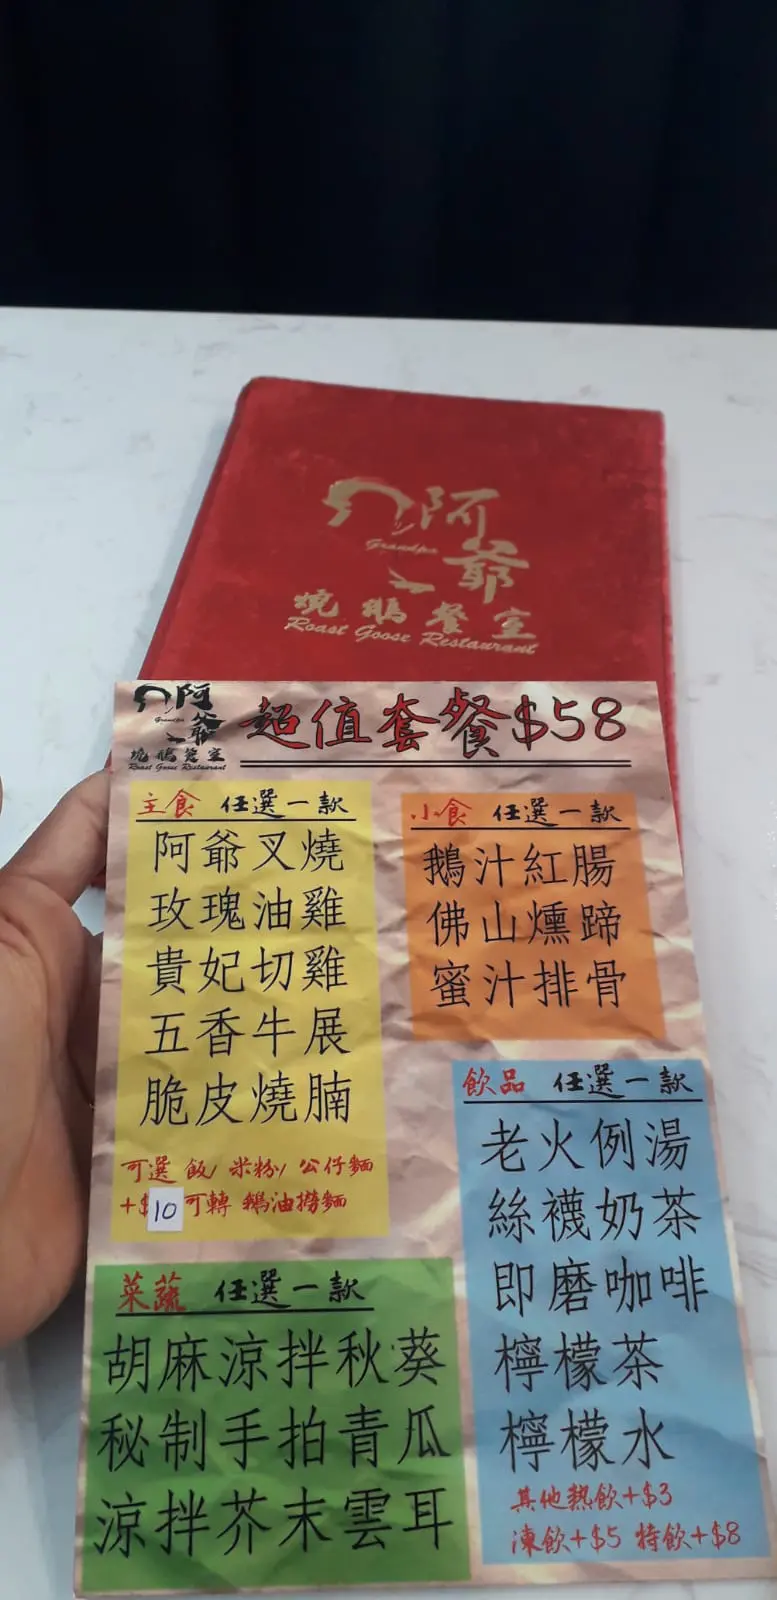 阿爺
Grandpa
燒鵝餐室
Roast Goose Restaurant
阿爺
Grandpa
燒鵝餐室
Roast Goose Restaurant
超值套餐$58
主食 任選一款
阿爺叉燒
玫瑰油雞
貴妃切雞
五香牛展
脆皮燒腩
可選 飯/ 米粉/ 公仔麵
+$10 可轉 鵝油撈麵
小食 任選一款
鵝汁紅腸
佛山燻蹄
蜜汁排骨
菜蔬 任選一款
胡麻涼拌秋葵
秘制手拍青瓜
涼拌芥末雲耳
飲品 任選一款
老火例湯
絲襪奶茶
即磨咖啡
檸檬茶
檸檬水
其他熱飲+$3
凍飲+$5 特飲+$8